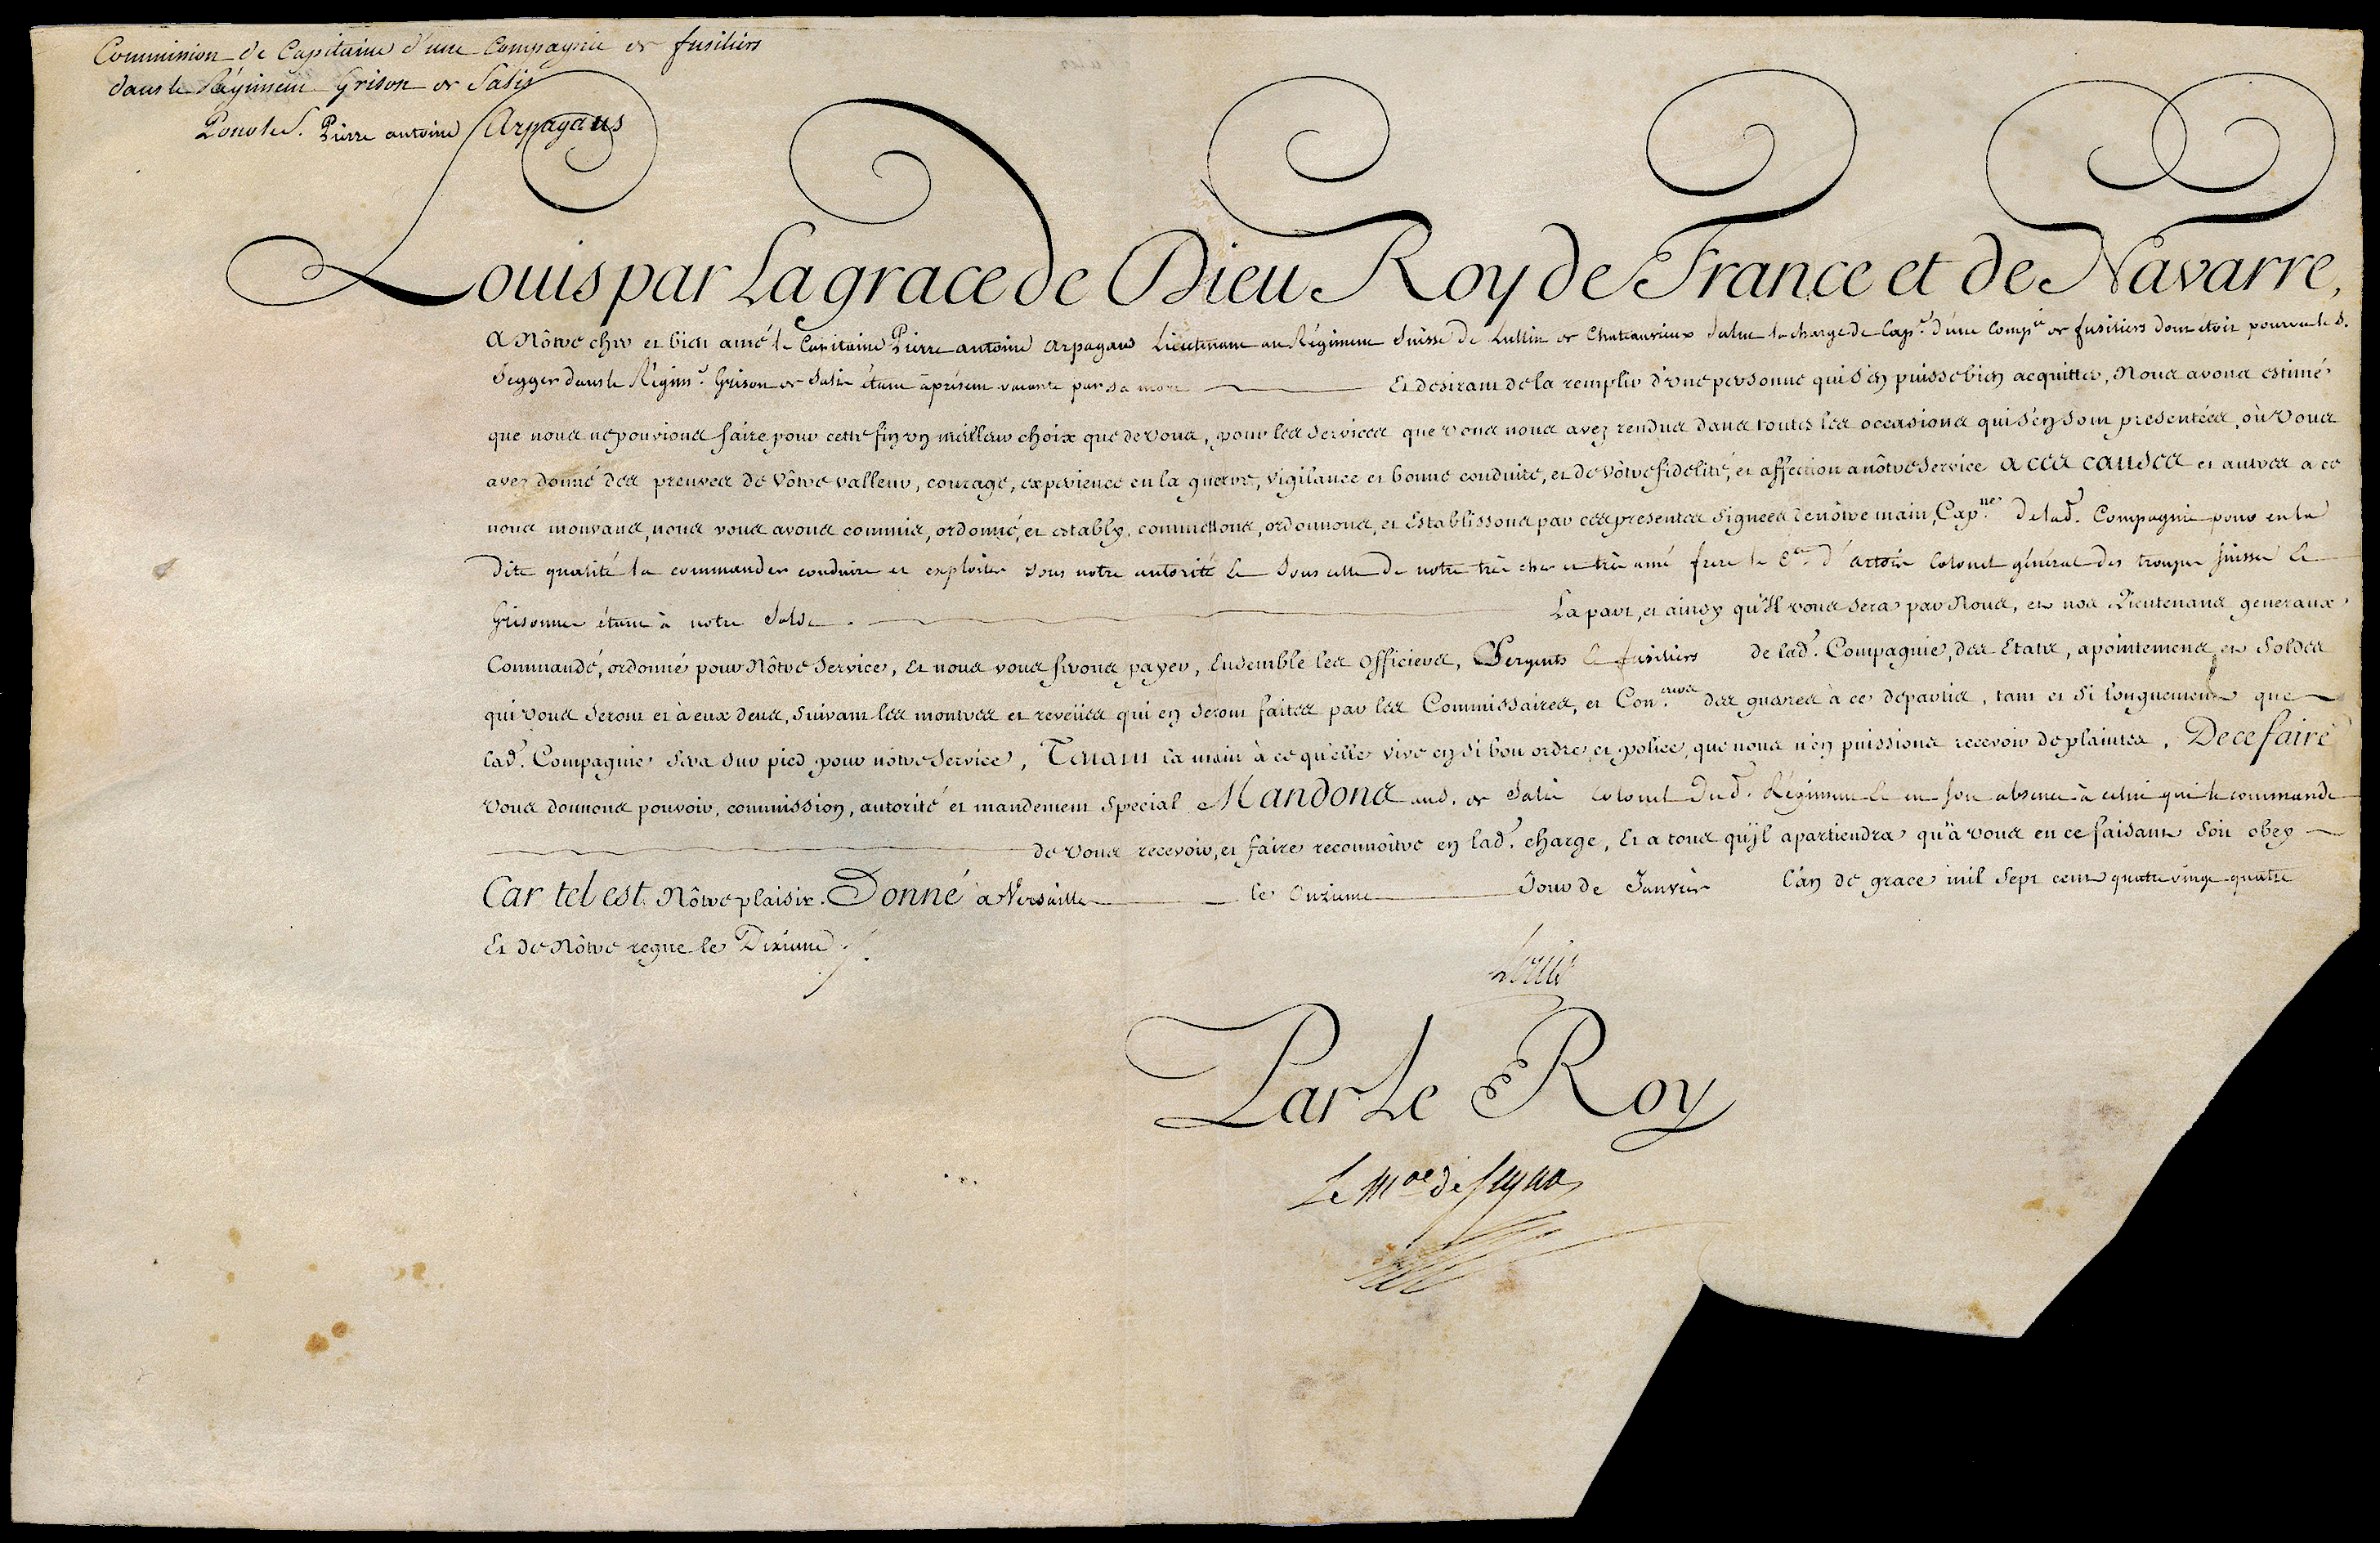 Commission de Capitaine d'une Compagnie de fusiliers
dans le Régiment Grison de Salis
Pour le S. Pierre antoine Arpagaus
Louis par La grace de Dieu Roy de France et de Navarre,
A Nôtre cher et bien amé le Capitaine Pierre antoine Arpagaus Lieutenant au Régiment Suisse de Lullin de Chateauvieux Salut la charge de Cap.e d'une Comp.ie de fusiliers dont étoit pourvu le S.
Segger dans le Régim.t Grison de Salis étant àprésent vacante par sa mort Et desirant de la remplir d'une personne qui s'en puisse bien acquitter, Nous avons estimé
que nous ne pouvions faire pour cette fin un meilleur choix que de vous, pour les services que vous nous avez rendus dans toutes les occasions qui s'en sont presentées, où vous
avez donné des preuves de vôtre valleur, courage, experience en la guerre, vigilance et bonne conduite, et de vôtre fidelité, et affection a nôtre service A ces causes et autres a ce
nous mouvans, nous vous avons commis, ordonné, et estably, commettons, ordonnons, et Establissons par ces presentes signées de nôtre main, Cap.ne de lad. Compagnie pour en la
dite qualité la commander conduire et exploiter sous notre autorité & sous celle de notre très cher et très amé frere le C.te d'artois Colonel général des troupes suisses &
Grisonnes étant à notre Solde. La part, et ainsy qu'Il vous sera par Nous, et nos Lieutenans generaux
Commandé, ordonné pour Nôtre service, Et nous vous ferons payer, Ensemble les Officiers, Sergents & fusiliers de lad. Compagnie, des Etats, apointemens et Soldes
qui vous seront et à eux deus, suivant les montres et reveües qui en seront faites par les Commissaires, et Con.eurs des guerres à ce departis, tant et si longuement que
lad. Compagnie sera sur pied pour nôtre service, Tenant la main à ce qu'elle vive en si bon ordre, et police, que nous n'en puissions recevoir de plaintes, De ce faire
vous donnons pouvoir, commission, autorité et mandement special Mandons au S. de Salis Colonel dud. Régiment & en son absence à celui qui le commande
de vous recevoir, et faire reconnoître en lad. charge, Et a tous qu'jl apartiendra qu'à vous en ce faisant soit obey
Car tel est Nôtre plaisir. Donné à Versailles le Onzieme Jour de Janvier l'an de grace mil sept cent quatre vingt quatre
Et de Nôtre regne le Dixieme.
Louis
Par Le Roy
Le M.al de Segur